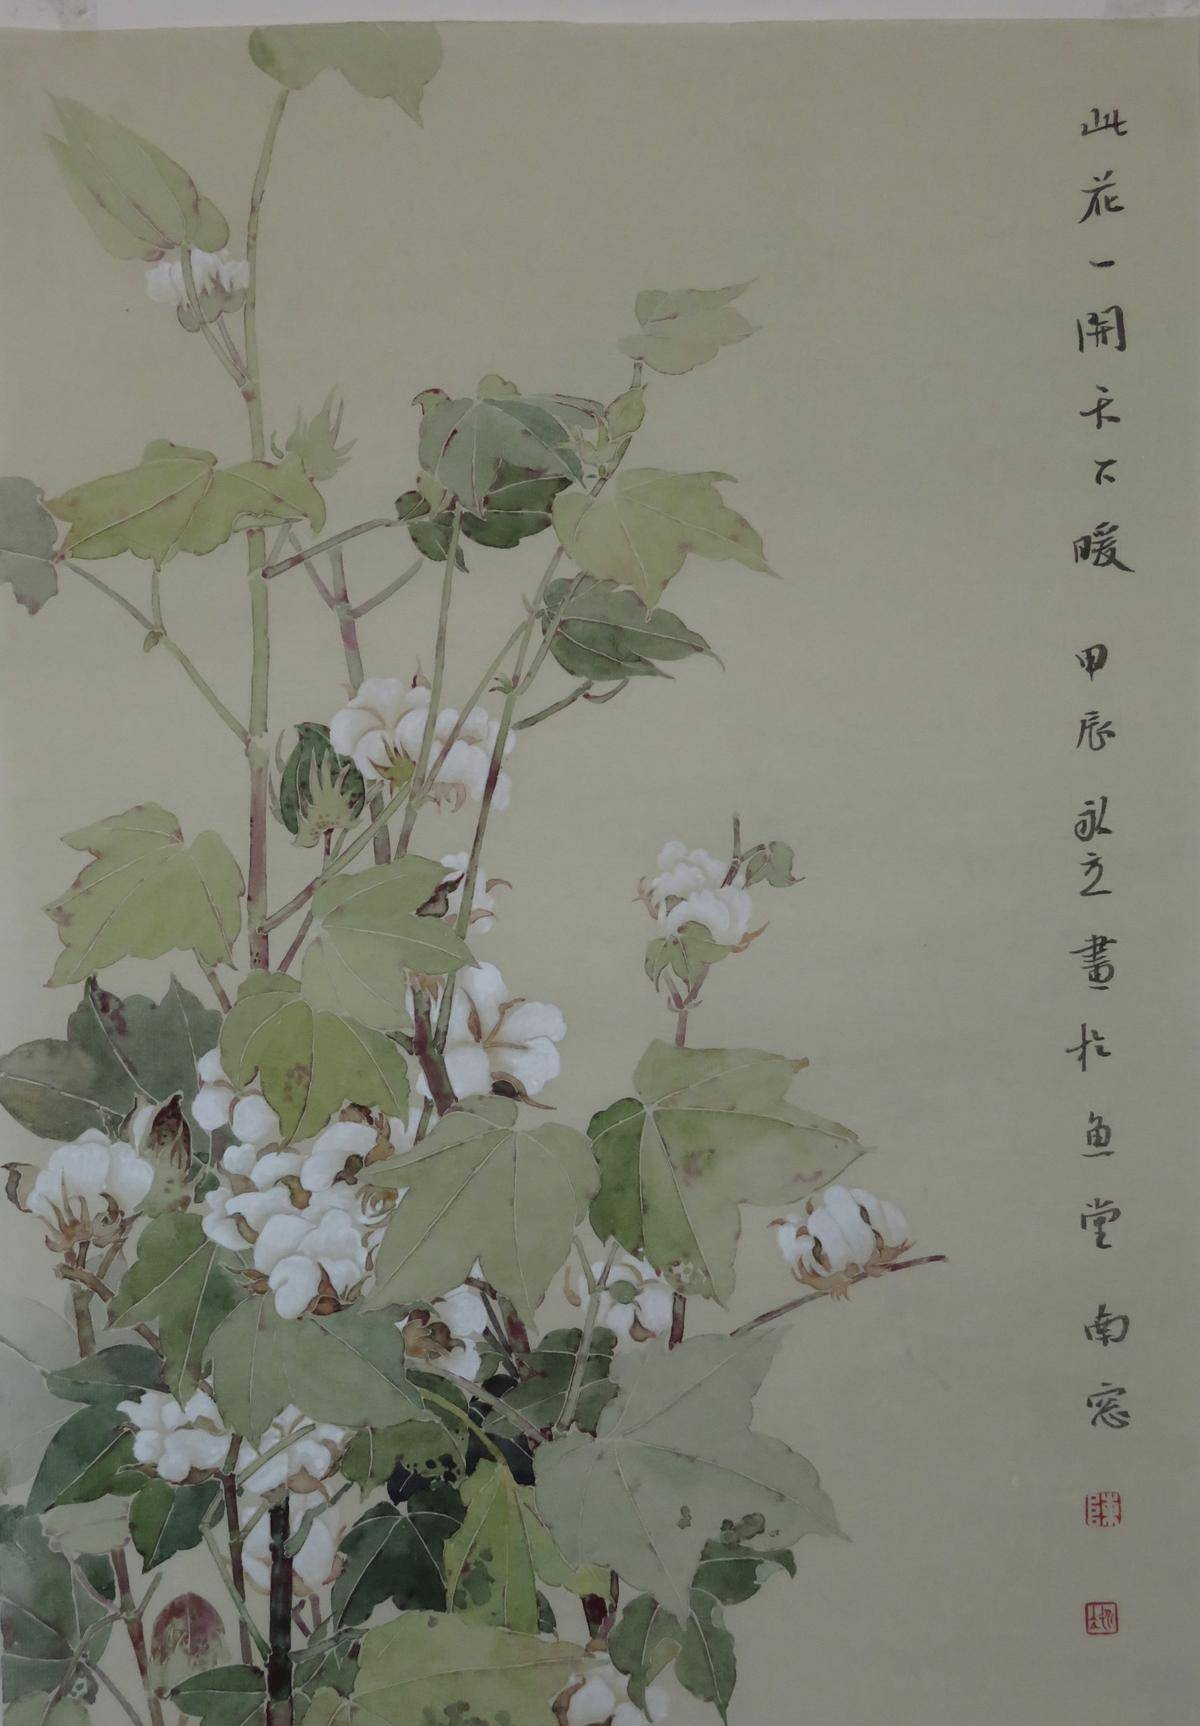 此花一開天下暖 甲辰 永立畫於魚堂南窓
陳